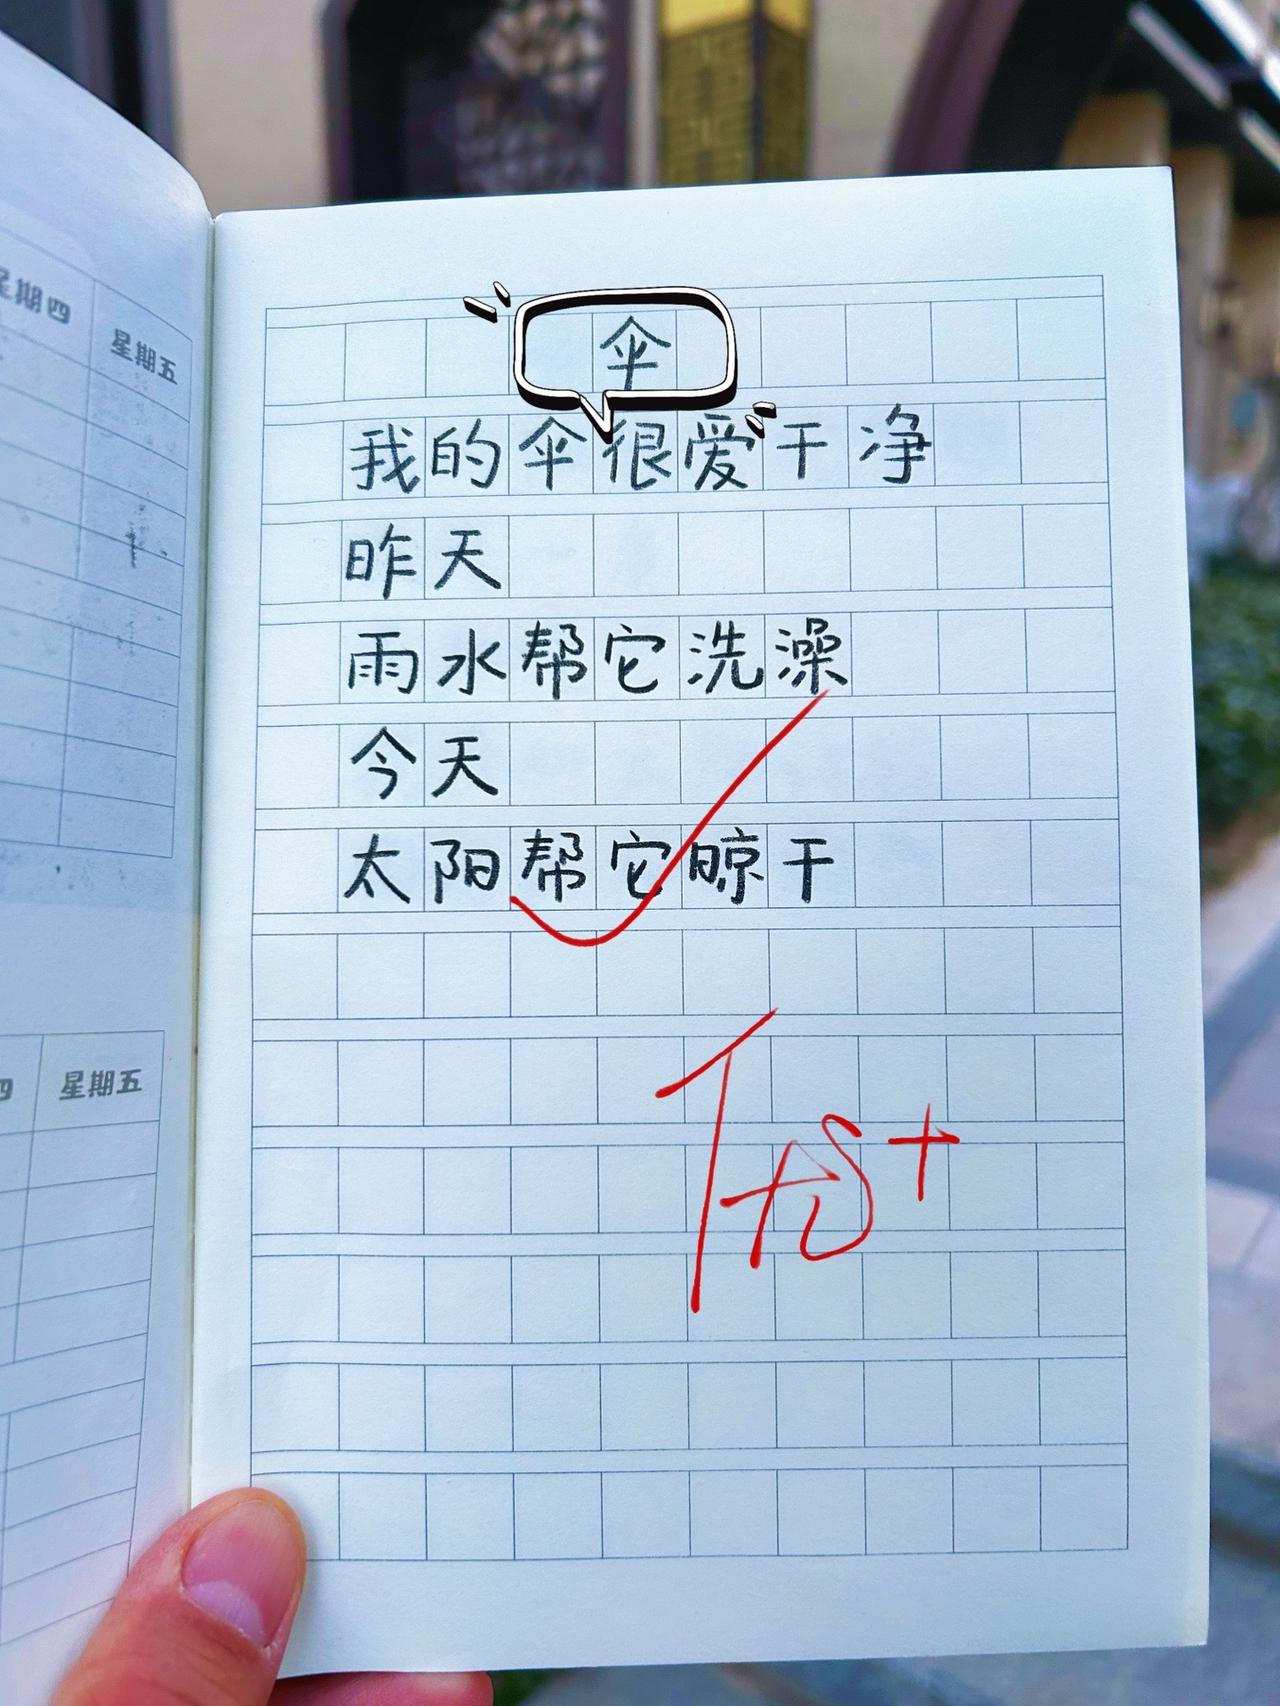 星期四
星期五
伞
我的伞很爱干净
昨天
雨水帮它洗澡
今天
太阳帮它晾干
四
星期五